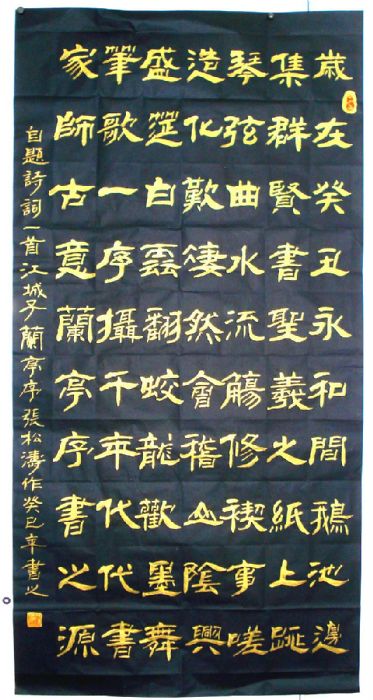 歲在癸丑永和間鵝池邊
集群賢書聖羲之紙上跳
琴弦曲水流觴修禊事嗟
造化歎淒然會稽山陰興
盛筵白雲翻蛟龍歡墨舞
筆歌一序攝千年代代書
家師古意蘭亭序書之源
自題詩詞一首江城子蘭亭序張松濤作癸巳年書之